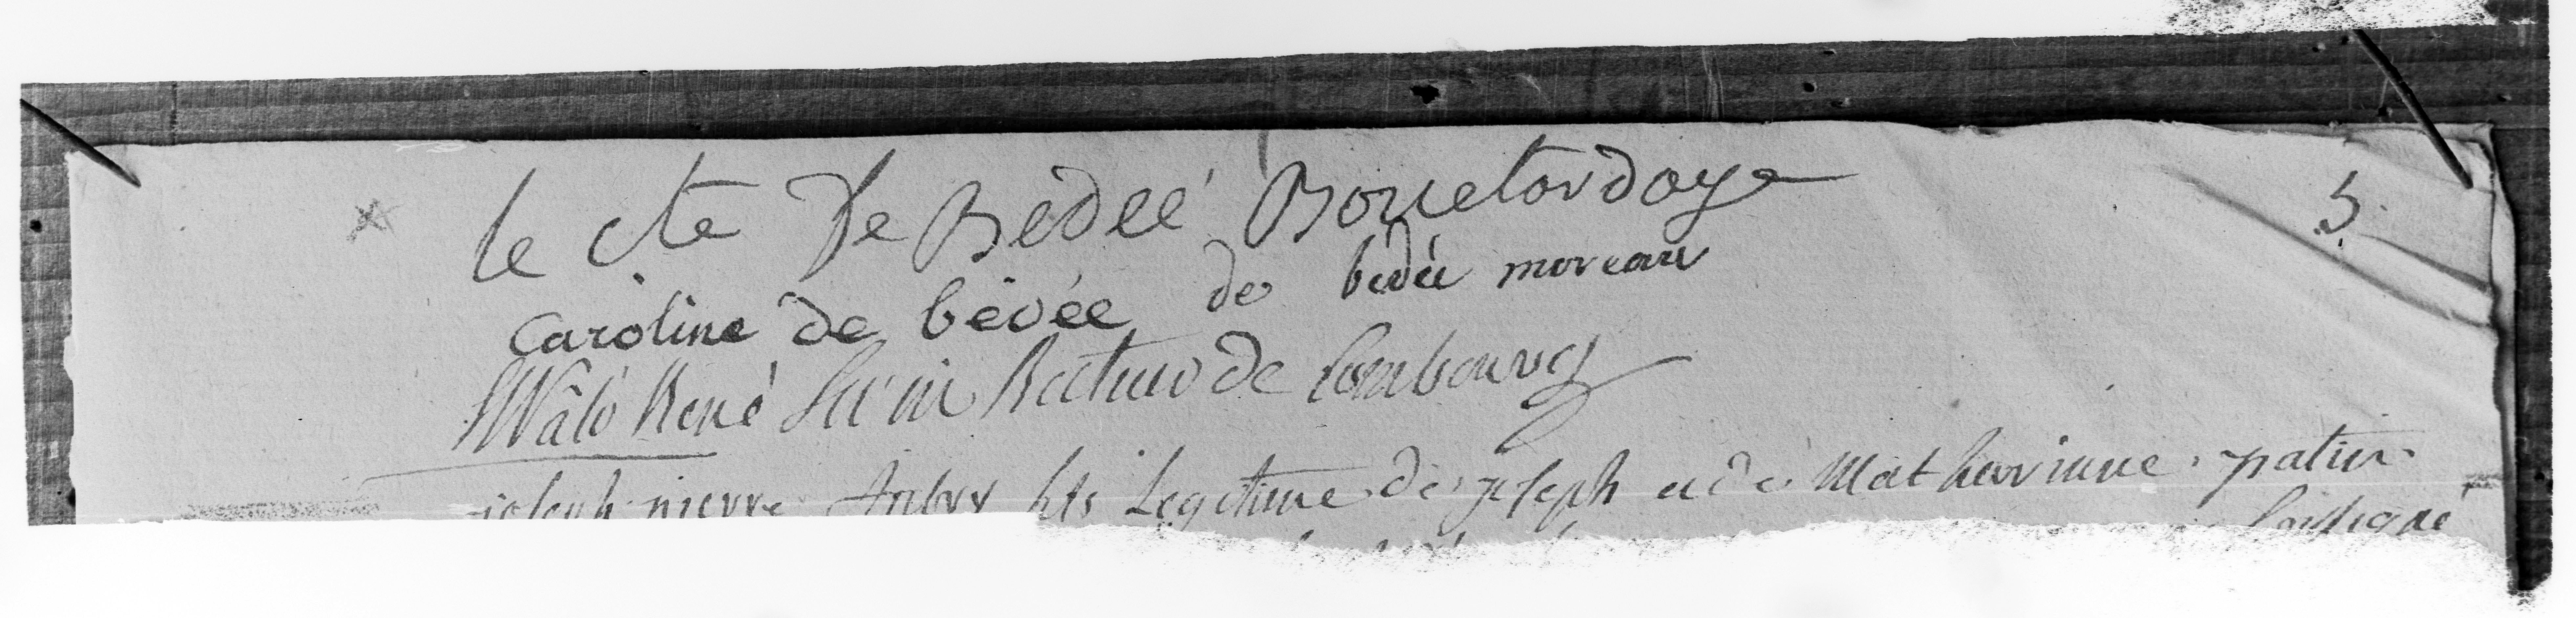 le cte De Bedeé Bouetardaye 5
Caroline de bédée de bédée moreau
Mâlo René Sévin Recteur de Combourg
joseph pierre Aubry fils Legitime de joseph et de Mathurinne patier
Soussigné